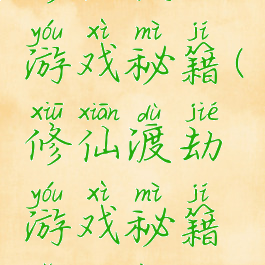 yóu xì mì jí
游戏秘籍(
xiū xiān dù jié
修仙渡劫
yóu xì mì jí
游戏秘籍